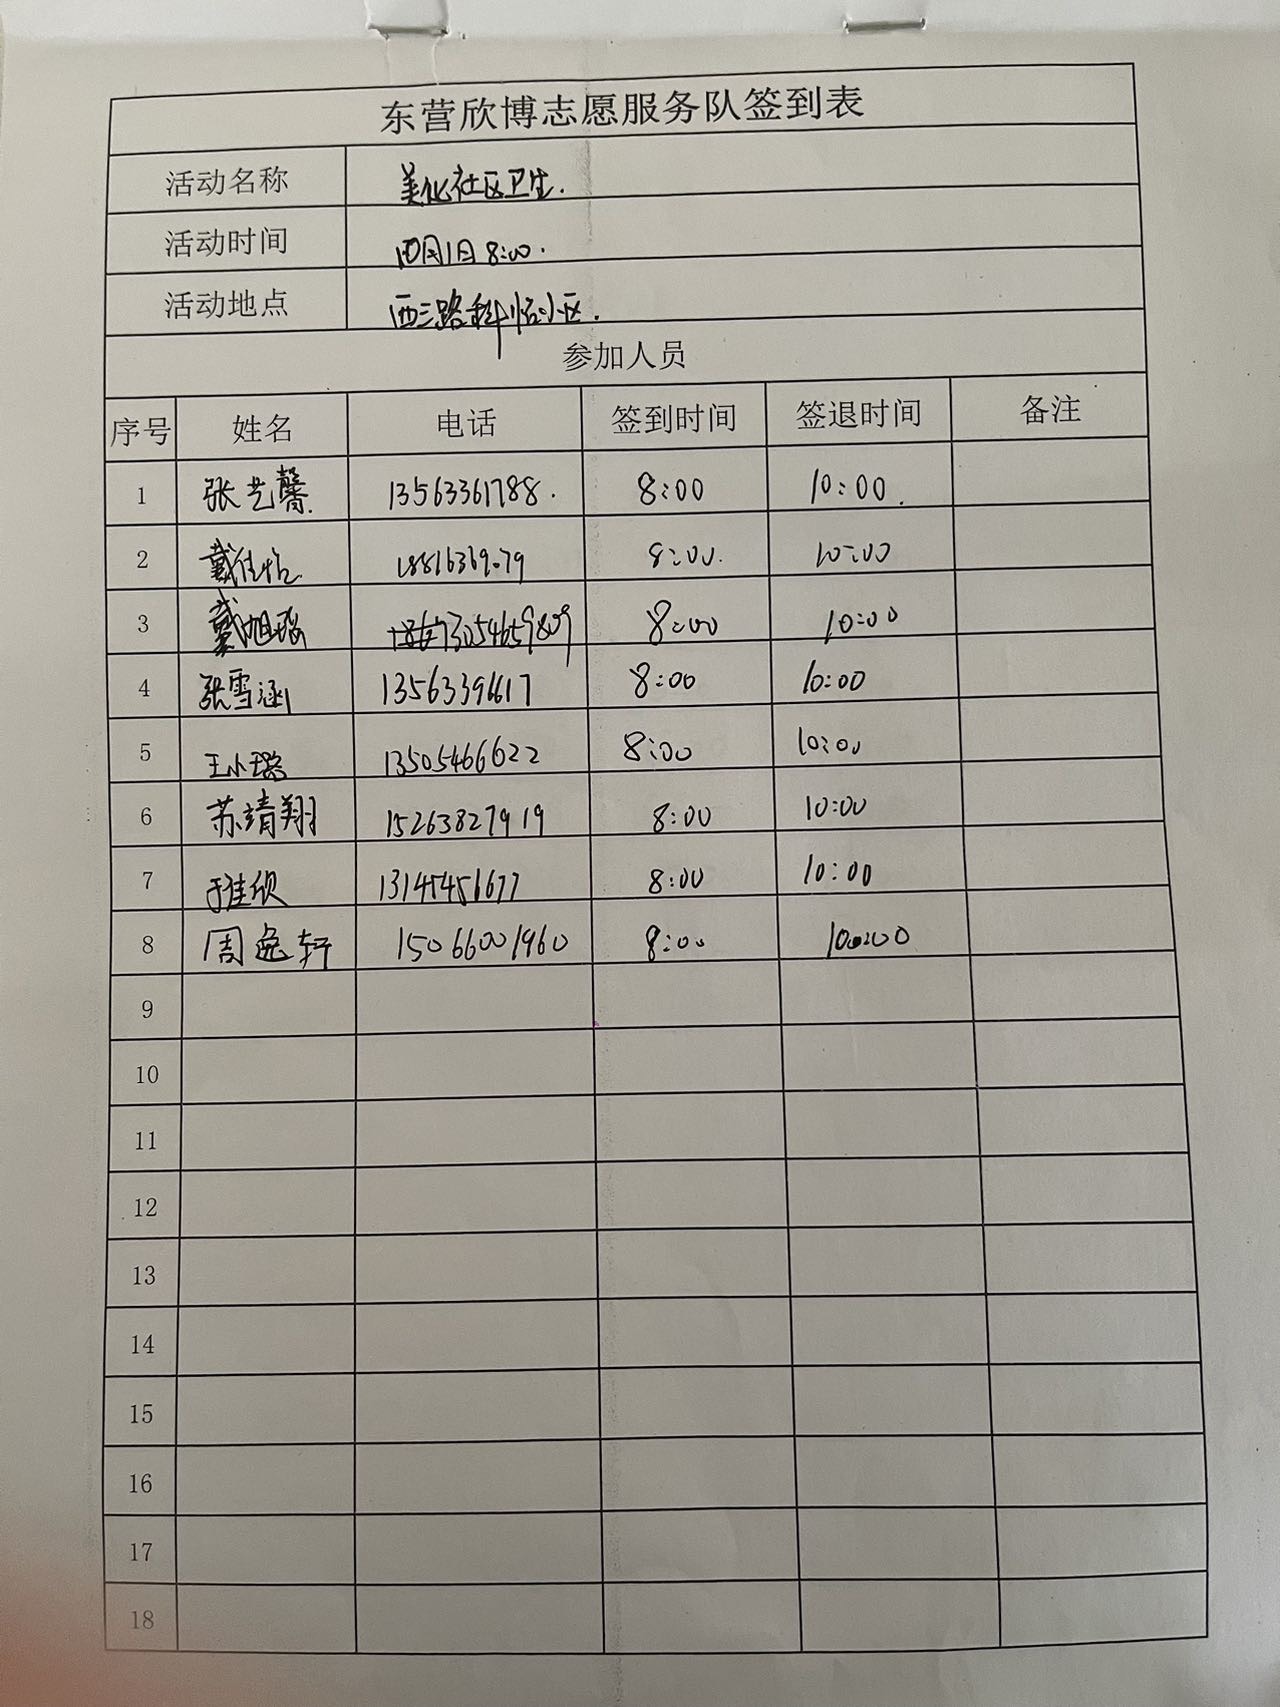 东营欣博志愿服务队签到表
活动名称 美化社区卫生.
活动时间 10月1日 8:00.
活动地点 西三路科怡小区.
参加人员
序号 姓名 电话 签到时间 签退时间 备注
1 张艺馨. 13563361788. 8:00 10:00.
2 戴佳怡 18816369079 8:00. 10:00
3 戴旭瑶 73054659809 8:00 10:00
4 张雪涵 13563396617 8:00 10:00
5 王小璐 13505466622 8:00 10:00
6 苏靖翔 15263827919 8:00 10:00
7 于佳欣 13145451677 8:00 10:00
8 周逸轩 15066001960 8:00 10:00
9
10
11
12
13
14
15
16
17
18